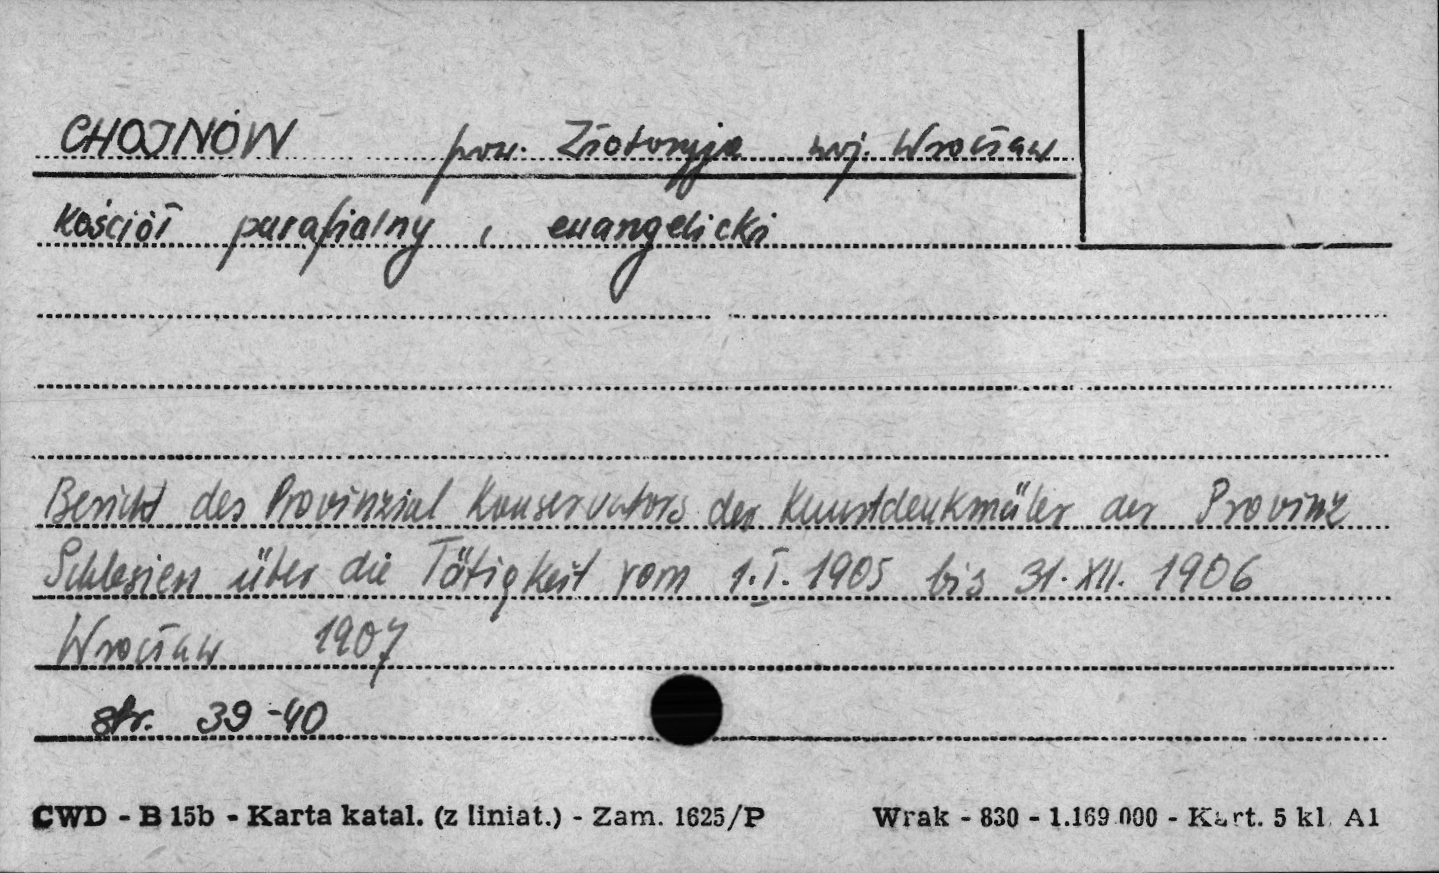 CHOJNÓW pow. Złotoryja woj. Wrocław
Kościół parafialny, ewangelicki
Bericht des Provinzial Konservators der Kunstdenkmäler der Provinz
Schlesien über die Tätigkeit vom 1.I.1905 bis 31.XII.1906
Wrocław 1907
str. 39-40
CWD - B 15b - Karta katal. (z liniat.) - Zam. 1625/P Wrak - 830 - 1.169.000 - Kart. 5 kl. A1